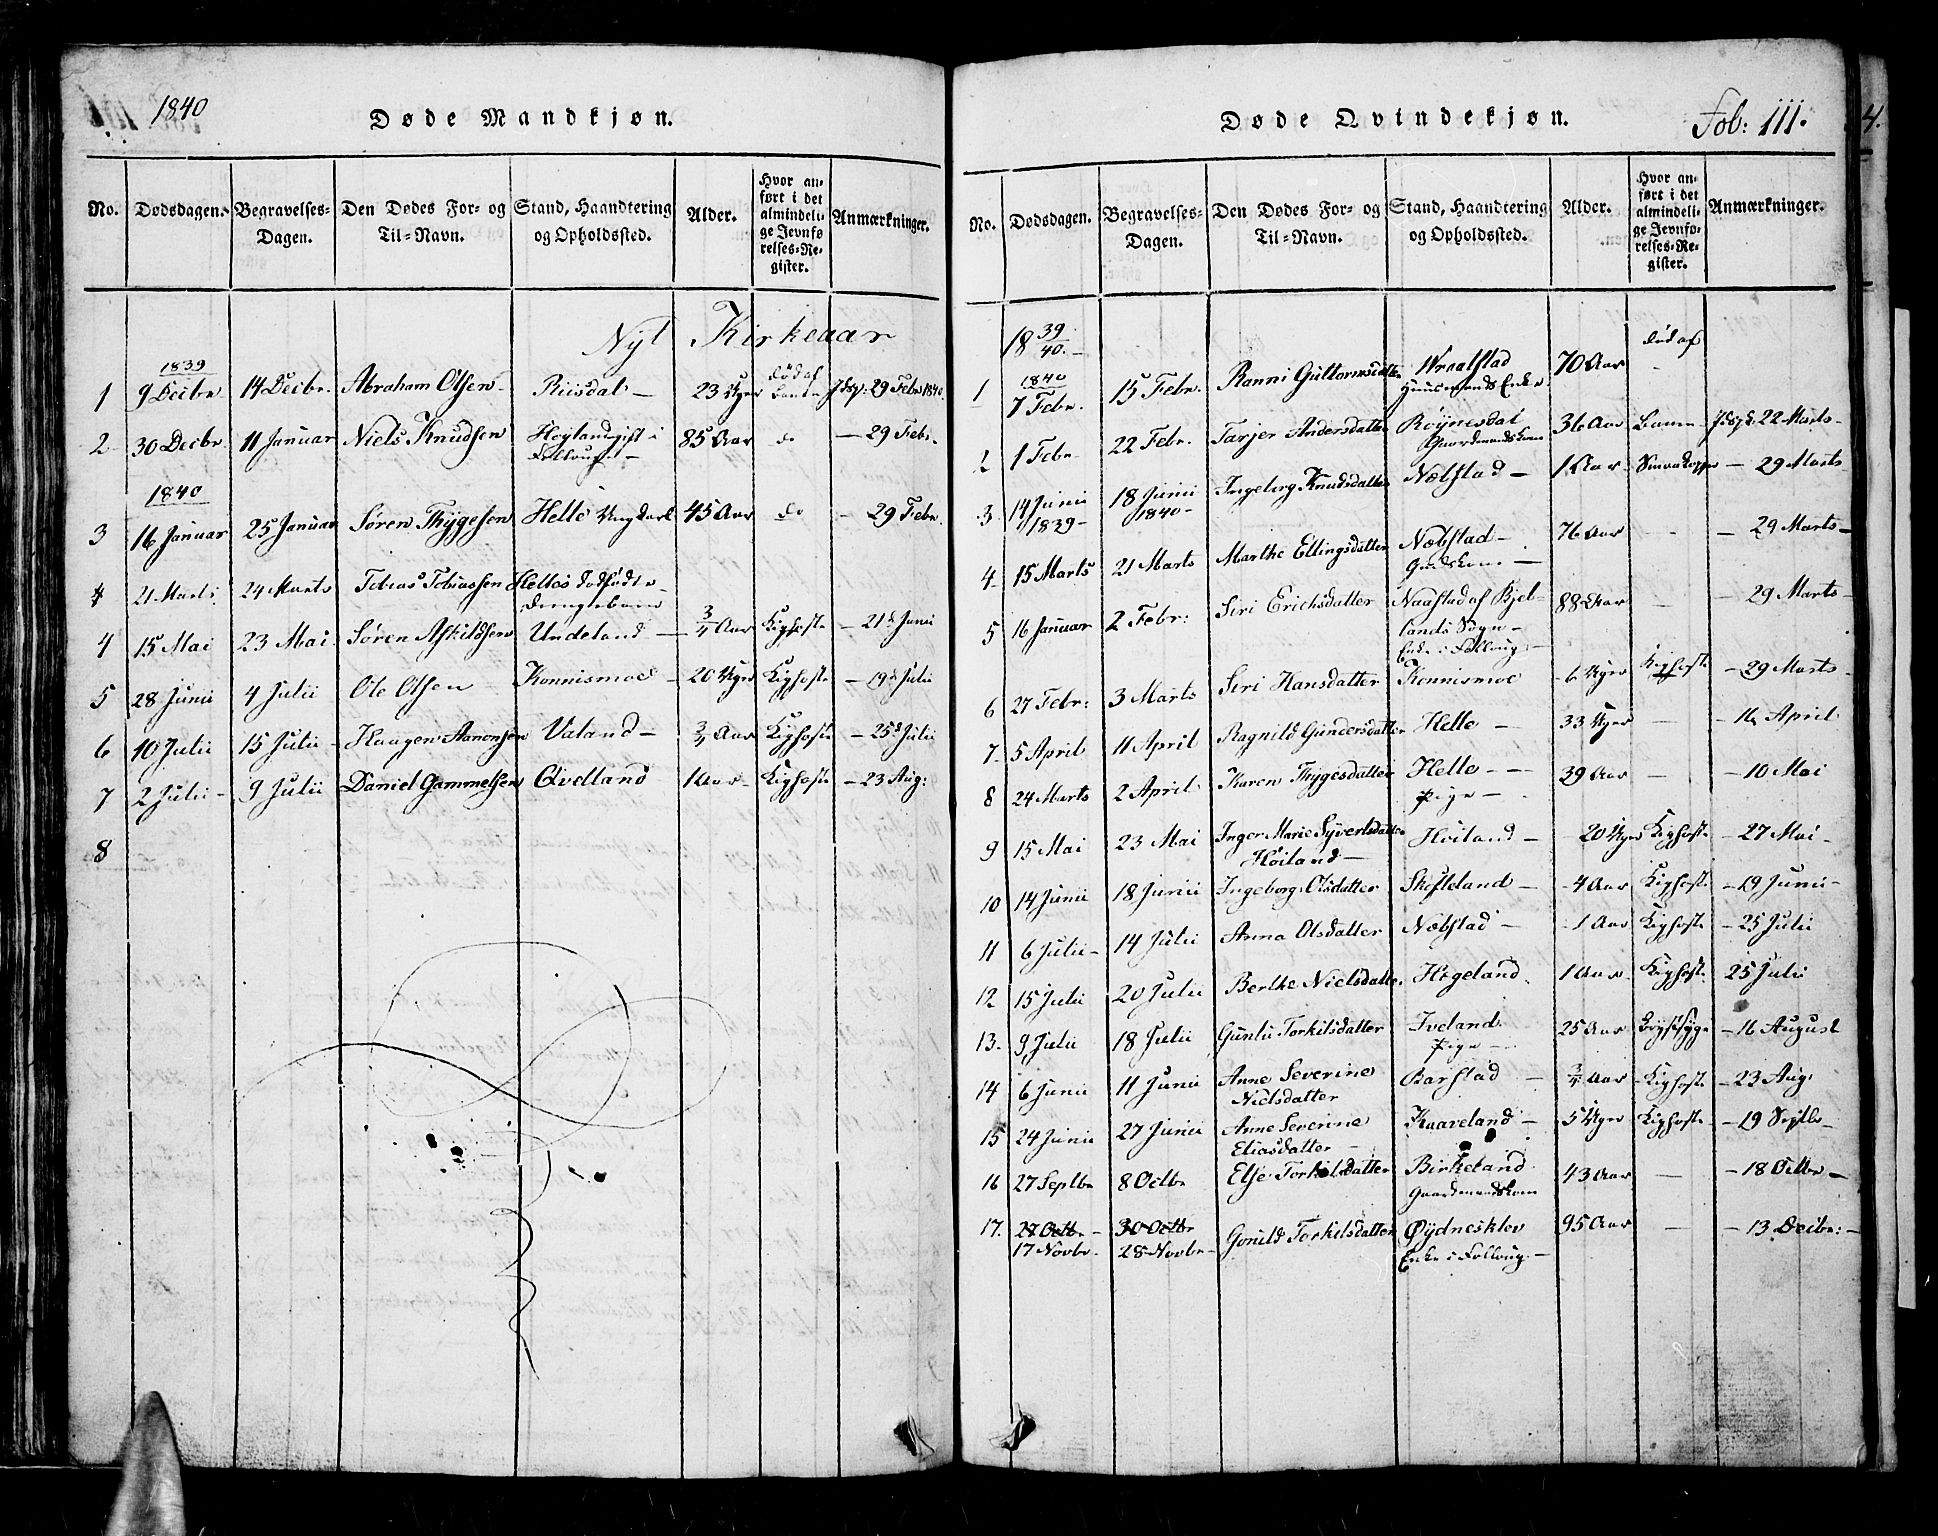 1840
Døde Mandkjøn.
No. Dødsdagen. Begravelses-Dagen. Den Dødes For- og Til-Navn. Stand, Haandtering og Opholdssted. Alder. Hvor anført i det almindelige Jevnførelses-Register. Anmærkninger.
Nyt Kirkeaar
1839
1 9 Decbr 14 Decbr. Abraham Olsen Riisdal 23 Uger død af 29 Febr 1840.
2 30 Decbr. 11 Januar Niels Knudsen Høyland 85 Aar do 29 Febr.
1840
3 16 Januar 25 Januar Søren Thygesen Helle 45 Aar do 29 Febr.
4 21 Marts 24 Marts Tobias Tobiassen Helles dødfødte
Drengebarn
4 15 Mai 23 Mai Søren Askildsen Undeland 3/4 Aar Kighoste 21 Junii
5 28 Junii 4 Julii Ole Olsen Konnismoe 20 Uger Kighoste 19 Julii
6 10 Julii 15 Julii Haagen Aanonsen Valand 3/4 Aar Kighoste 25 Julii
7 2 Julii 9 Julii Daniel Gammelsen Qvelland 1 Aar Kighoste 23 Aug:
8
Døde Qvindekjøn.
Fol: 111.
No. Dødsdagen. Begravelses-Dagen. Den Dødes For- og Til-Navn. Stand, Haandtering og Opholdssted. Alder. Hvor anført i det almindelige Jevnførelses-Register. Anmærkninger.
18 39/40. død af
1840
1 7 Febr. 15 Febr. Ranni Guttormsdatter Wraalstad 70 Aar
Huusmands Enke
2 1 Febr 22 Febr. Tarjer Andersdatter Røynesdal 36 Aar 22 Marts
Gaardmandskone
3 14 Junii 1839 18 Junii 1840 Ingeborg Knudsdatter Nøbstad 1 Aar 29 Marts
4 15 Marts 21 Marts Marthe Ellingsdatter Nøbstad 76 Aar 29 Marts
5 16 Januar 2 Febr: Siri Erichsdatter Naastad af Bjel- 88 Aar 29 Marts
lands Sogn
Enke i Følloug
6 27 Febr: 3 Marts Siri Hansdatter Konnismoe 6 Uger Kighoste 29 Marts
7 5 April 11 April Ragnild Gundersdatter Helle 33 Uger 16 April
8 24 Marts 2 April Karen Thygesdatter Helle 39 Aar 10 Mai
Pige
9 15 Mai 23 Mai Inger Marie Syvertsdatter Høiland 20 Uger Kighoste 27 Mai
Høiland
10 14 Junii 18 Junii Ingeborg Olsdatter Skofteland 4 Aar Kighoste 19 Junii
11 6 Julii 14 Julii Anna Olsdatter Nøbstad 1 Aar Kighoste 25 Julii
12 15 Julii 20 Julii Berthe Nielsdatter Høgeland 1 Aar Kighoste 25 Julii
13. 9 Julii 18 Julii Gunlu Torkilsdatter Iveland 25 Aar Brystsyge 16 August
Pige
14 6 Junii 11 Junii Anne Severine Barstad 3/4 Aar Kighoste 23 Aug:
Nielsdatter
15 24 Junii 27 Junii Anne Severine Kaaveland 5 Uger Kighoste 19 Septbr
Eliasdatter
16 27 Septbr 8 Octbr Else Torkilsdatter Birkeland 43 Aar 18 Octbr
Gaardmandskone
17. 27 Octbr 30 Octbr Gonild Torkilsdatter Øydnesklev 95 Aar 13 Decbr:
17 Novbr. 28 Novbr Enke i Følloug
4.